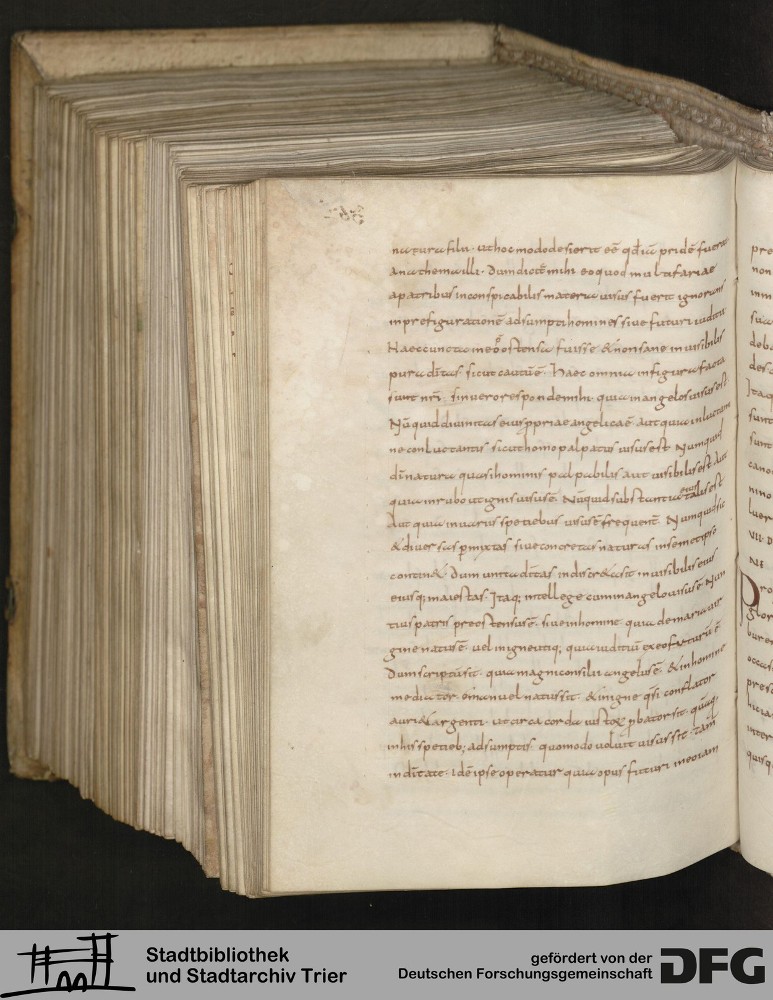 natura filii · ut hoc modo desierit eē qd iā pridē fuerit
anathema illi · Dum dictē mihi eo quod multifariae
a patribus inconspicabilis materia visus fuerit ignorans
in prefiguratione adsumpti hominis sive futuri iudicii
Haec cuncta meo ostensa fuisse & non sane invisibilis
pura ditas sicut cautuē · Haec omnia in figura facta
sunt nri · sin vero respondem mihi · quia in angelo visus est ·
Nūquid divinitas eius ppriae angelicaē aut quia in luctam
ne conluctantis sicut homo palpatus visus est Numquid
di natura quasi hominis palpabilis aut visibilis est Aut
quia in rubo ut ignis visusē · Nūquid substantia eius talis est
Aut quia in variis spetiebus visusē frequent · Numquid sic
& diversas pmixtas sive concretas naturas in semetipso
contin& Dum unita ditas indiscr&a sit invisibilis eius
eiusq; maiestas · Itaq; intellege cum in angelo visusē · Nun
tius patris preostensusē · sive in homine quia de maria vir
gine natusē · vel in igne utiq; quia iuditiū ex eo futurū ē
Dum scriptū sit · quia magni consilii angelusē · & in homine
mediator · emanuel natus sit · & in igne qsi conflator
auri & argenti · ut circa corda iustoꝝ pbator sit · quāq;
in his spetieb; adsumptis · quomodo voluit visus sit · tam
in ditate · idē ipse operatur quia opus futuri in eo iam
pre
non
inm
sua
deb
des
Itaq
sunt
sunt
cano
nino
luer
VII · D
NE
Pro
glor
bure
occas
pres
lucia
inter
quisq
Stadtbibliothek
und Stadtarchiv Trier
gefördert von der
Deutschen Forschungsgemeinschaft
DFG